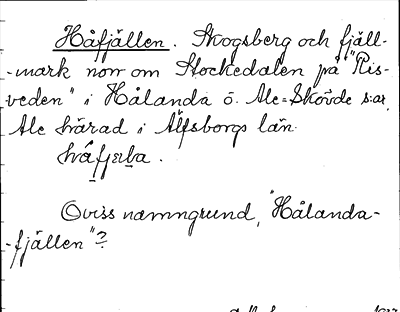 Håfjällen. Skogsberg och fjäll-
-mark norr om Stockedalen på "Ris-
veden" i Hålanda ö. Ale-Skövde s:ar,
Ale härad i Älfsborgs län.
håfjɛɫa.
Oviss namngrund, "Hålanda-
-fjällen"?